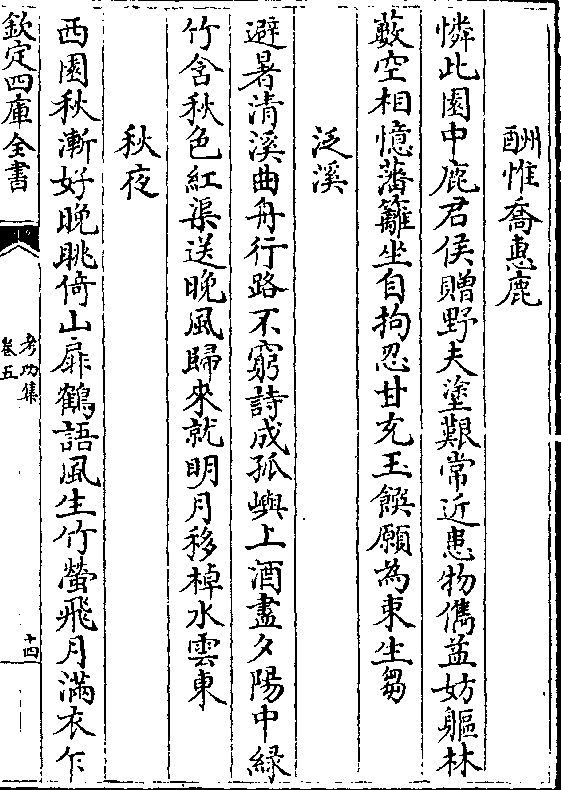 酬惟喬惠鹿
憐此園中鹿君侯贈野夫塗艱常近患物儁益妨軀林
藪空相憶藩籬坐自拘忍甘充玉饌願為束生芻
泛溪
避暑清溪曲舟行路不窮詩成孤嶼上酒盡夕陽中緑
竹含秋色紅渠送晚風歸來就明月移棹水雲東
秋夜
西園秋漸好晚眺倚山扉鶴語風生竹螢飛月滿衣乍
欽定四庫全書
考功集
卷五
十四